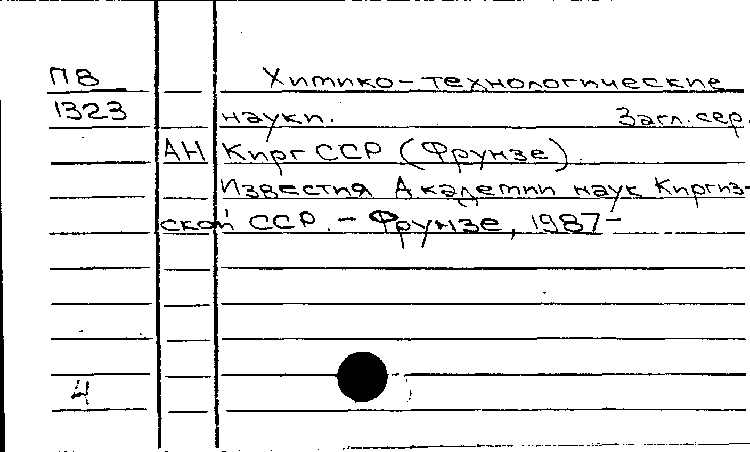 ПВ Химико-технологические
1323 науки. Загл. сер.
АН Кирг ССР (Фрунзе)
Известия Академии наук Киргиз-
ской ССР. - Фрунзе, 1987-
4